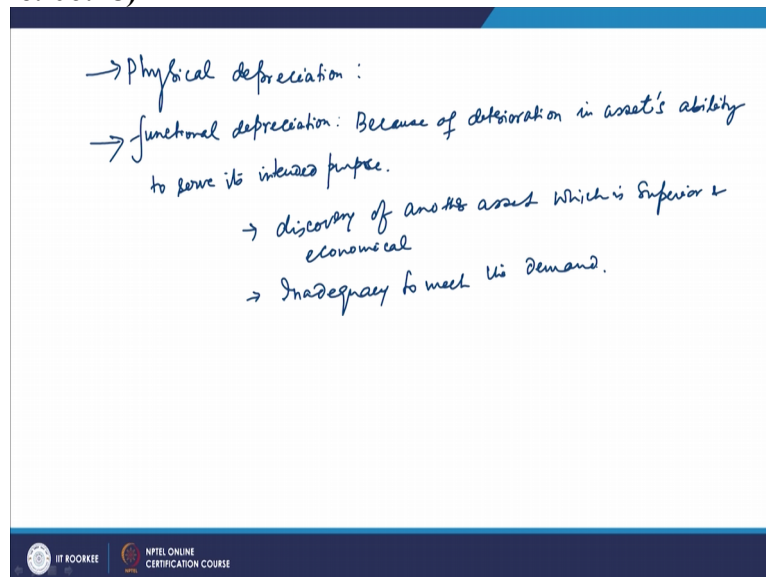 → Physical depreciation :
→ functional depreciation : Because of deterioration in asset's ability
to serve its intended purpose.
→ discovery of another asset which is superior &
economical
→ Inadequacy to meet the Demand.
IIT ROORKEE
NPTEL ONLINE
CERTIFICATION COURSE